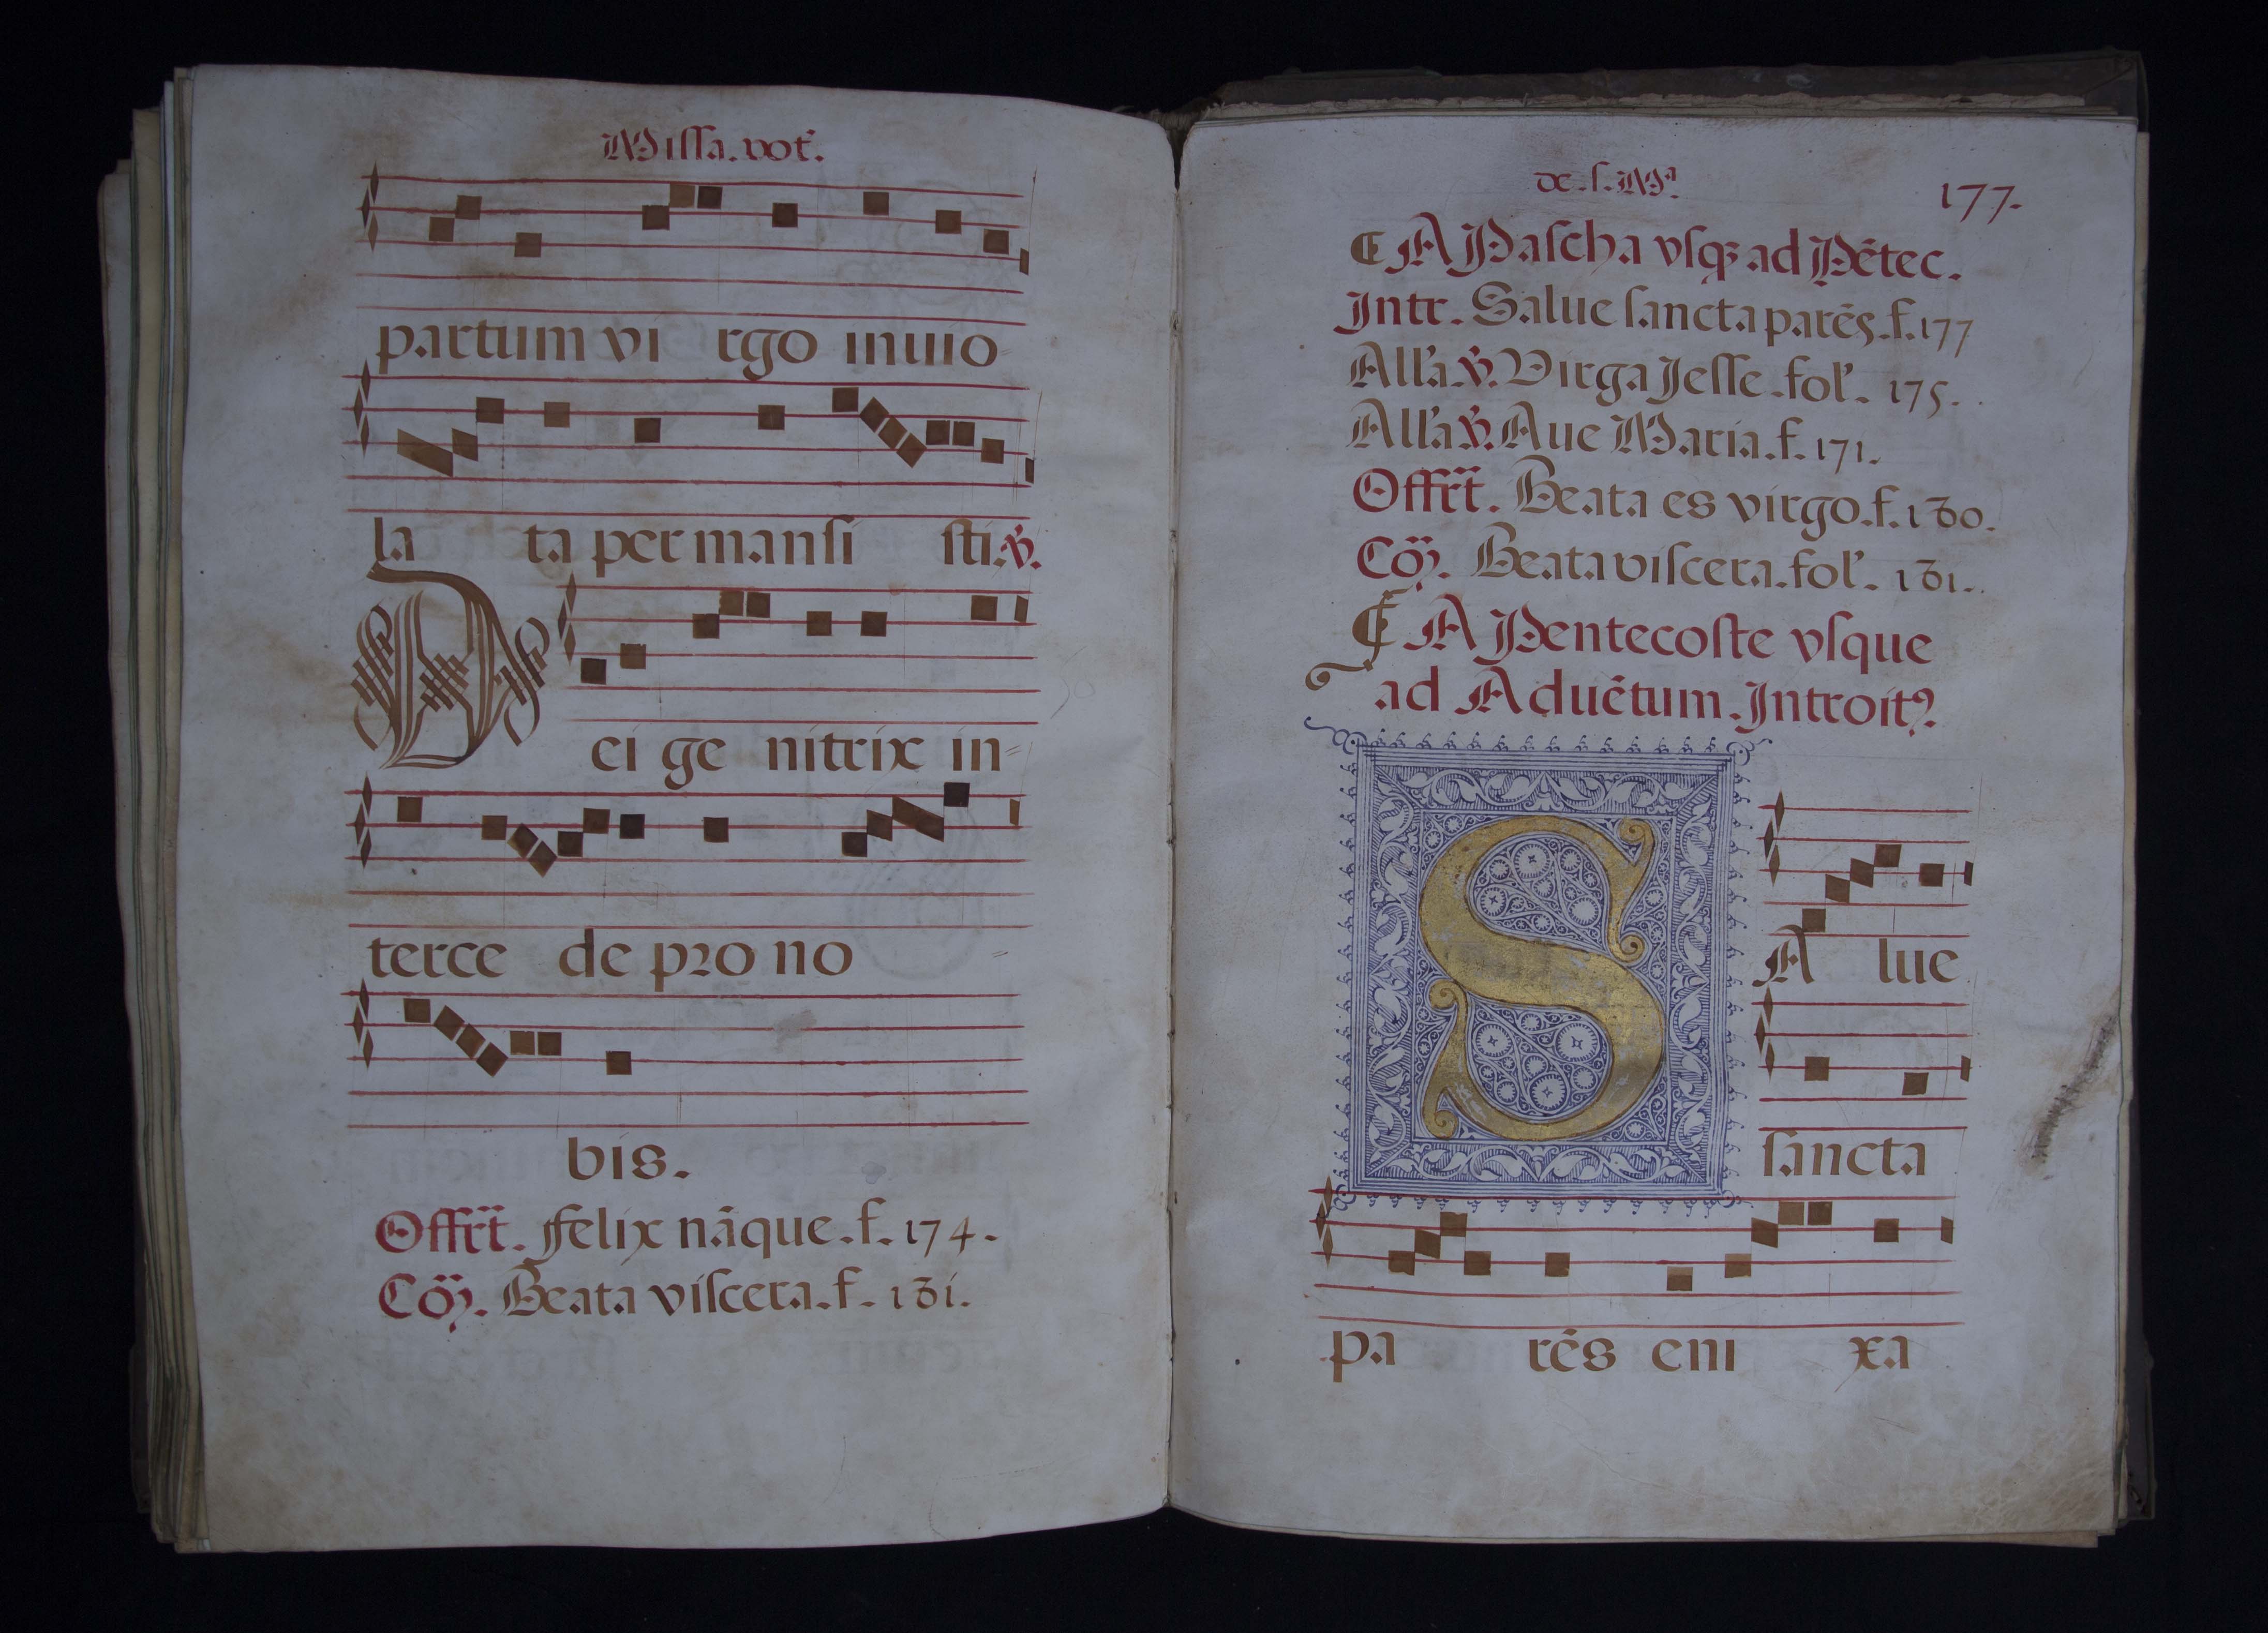 Missa. vot̃.
partum vi rgo inuio-
la ta per mansi sti. ℣.
Dei ge nitrix in-
terce de pro no
bis.
Offr̃t. ffelix nãque. f. 174.
Cõȝ. Beata viscera. f. 181.
de. s. Mª.
177.
¶ A Pascha vsqȝ ad Pẽtec.
Intr. Salue sancta parẽs. f. 177
All'a. ℣. Virga Jesse. fol'. 175.
All'a ℣. Aue Maria. f. 171.
Offr̃t. Beata es virgo. f. 180.
Cõȝ. Beata viscera. fol'. 181.
¶ A Pentecoste vsque
ad Aduẽtum. Introitꝰ.
SA lue
sancta
pa rẽs eni xa